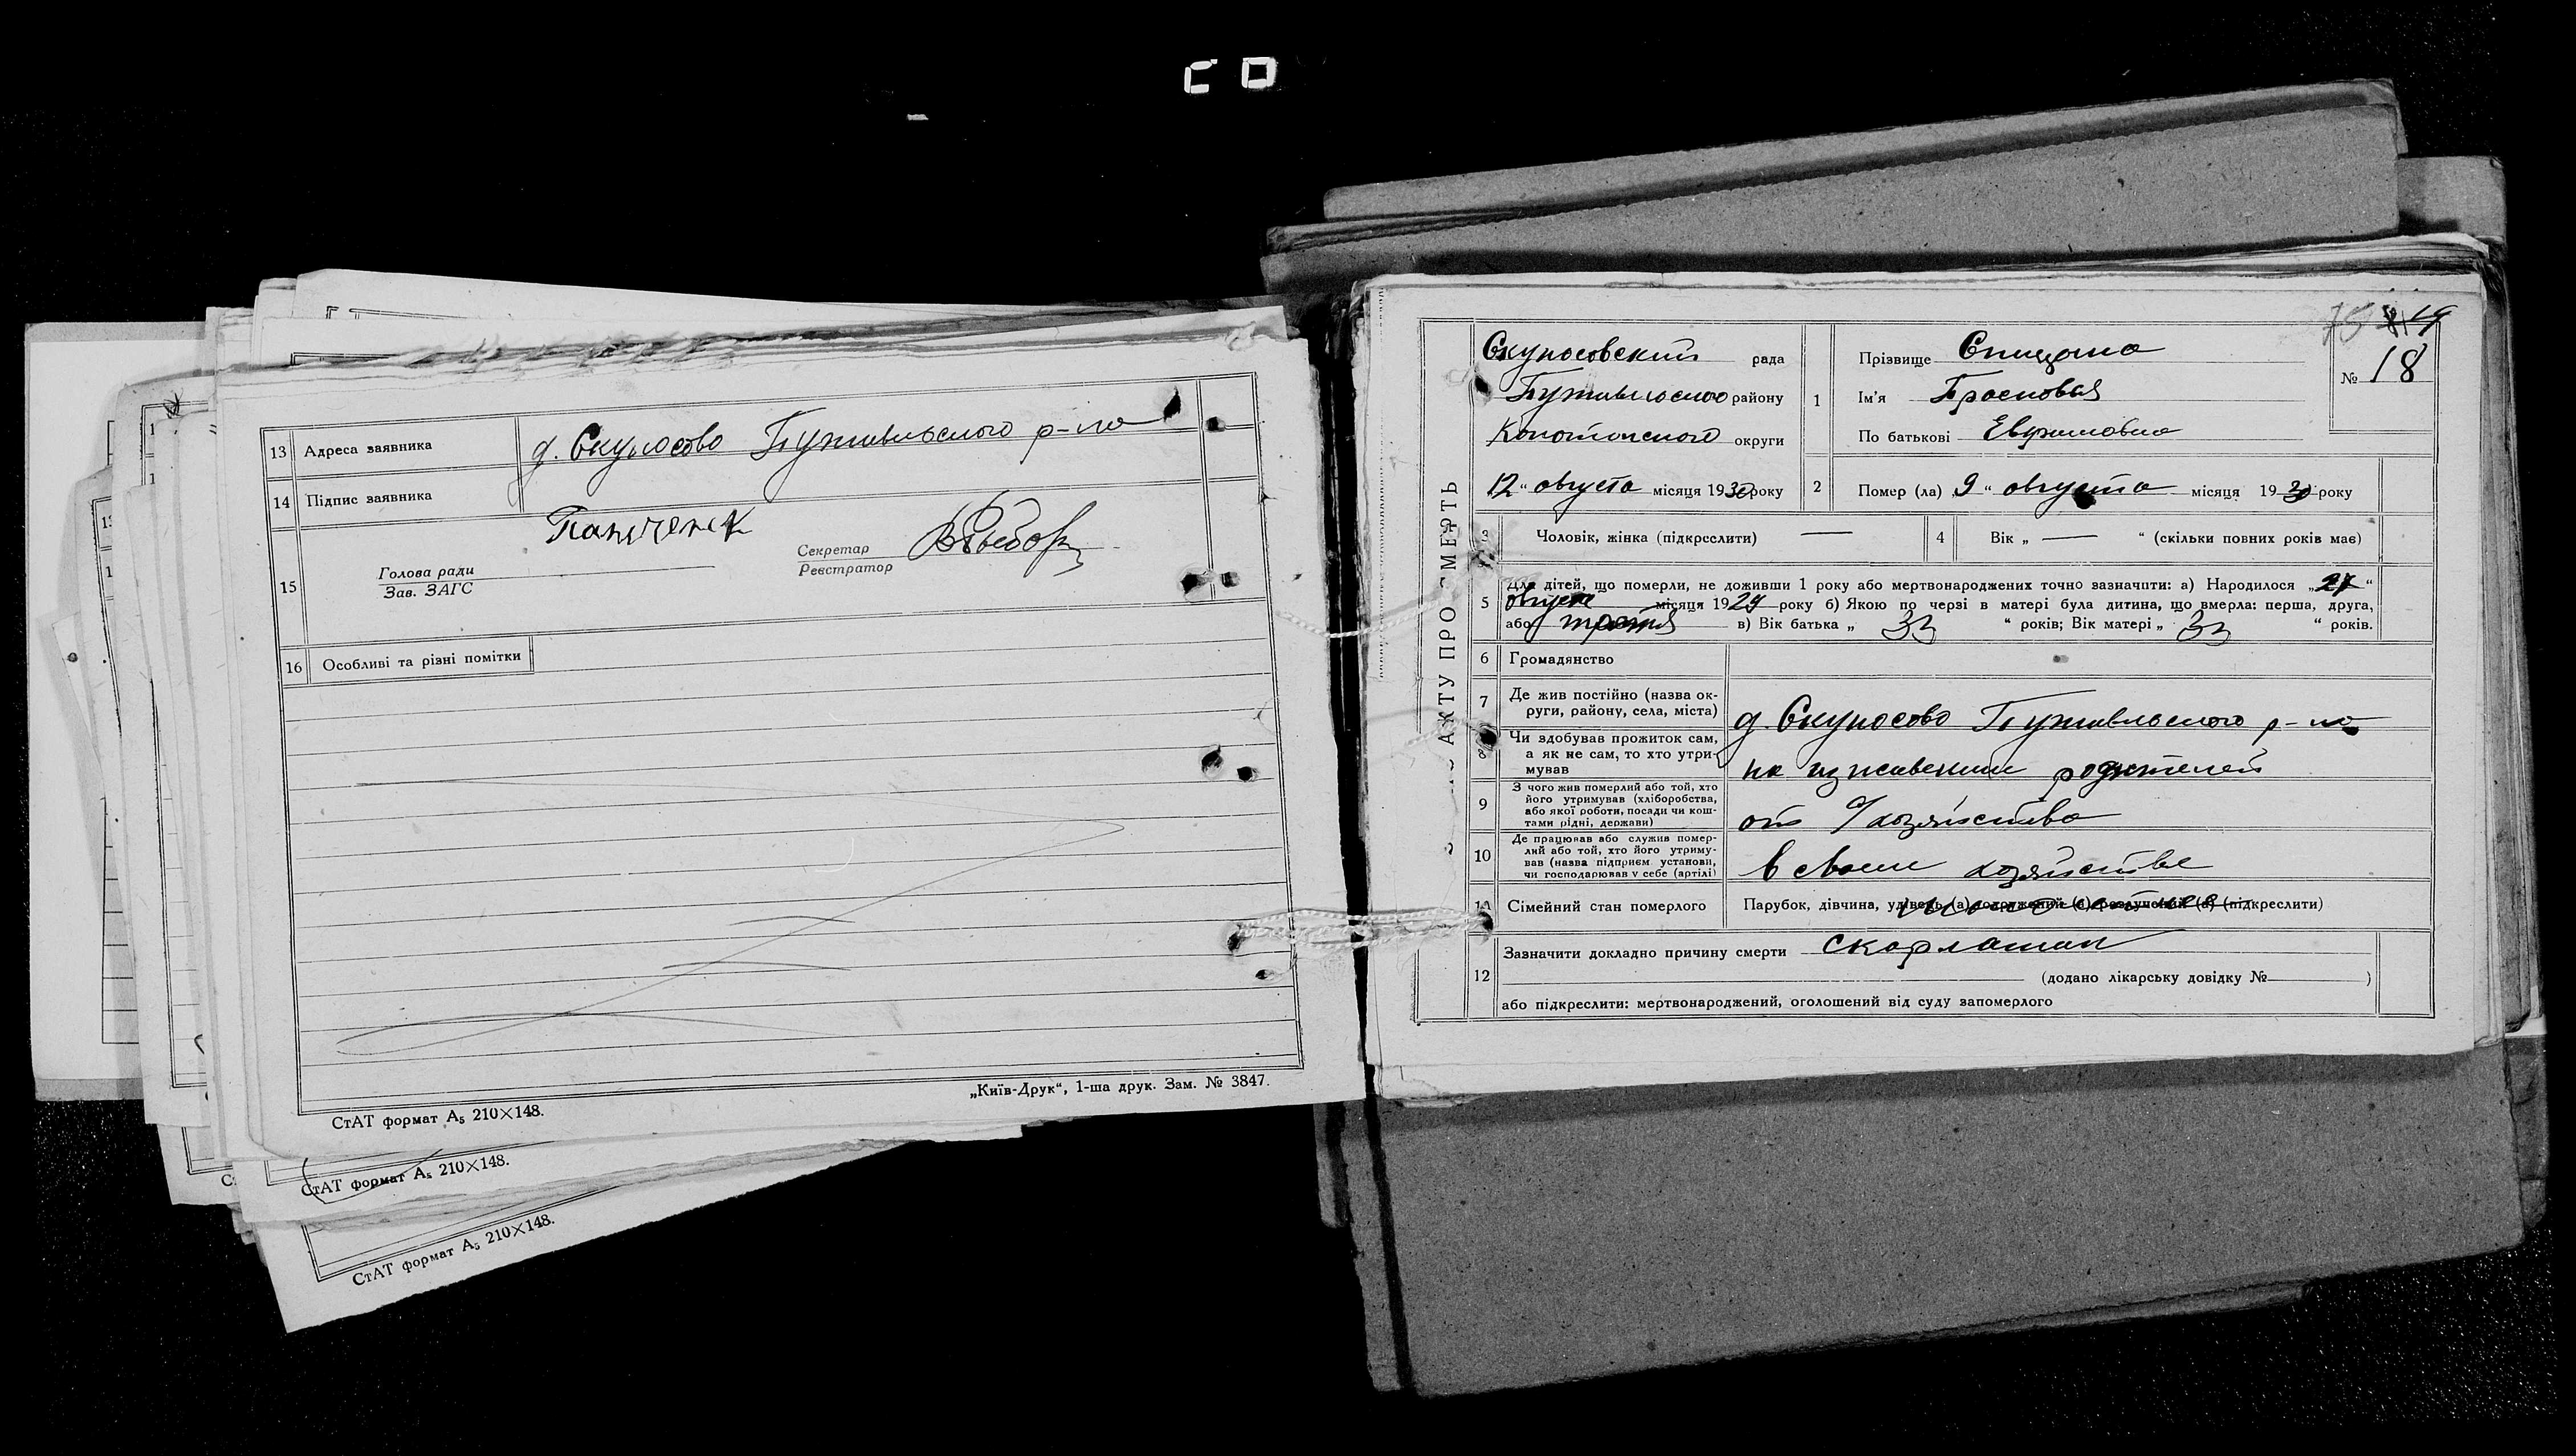 13 Адреса заявника д. Скуносово Путивльского р-на
14 Підпис заявника
15 Голова ради
Зав. ЗАГС
Секретар
Реєстратор
16 Особливі та різні помітки
„Київ-Друк“, 1-ша друк. Зам. № 3847.
СтАТ формат А₅ 210×148.
СтАТ формат А₅ 210×148.
СтАТ формат А₅ 210×148.
АКТУ ПРО СМЕРТЬ
Скуносовский рада
Путивльского району
Конотопского округи
12 “ августа місяця 1930 року
№ 18
1 Прізвище
Ім'я Прасковья
По батькові
2 Помер (ла) „ 9 “ августа місяця 1930 року
3 Чоловік, жінка (підкреслити) —
4 Вік „ — “ (скільки повних років має)
5 Для дітей, що померли, не доживши 1 року або мертвонароджених точно зазначити: а) Народилося „
августа місяця 1929 року б) Якою по черзі в матері була дитина, що вмерла: перша, друга,
або третья в) Вік батька „ 33 “ років; Вік матері „ 33 “ років.
6 Громадянство
7 Де жив постійно (назва ок-
руги, району, села, міста) д. Скуносово Путивльского р-на
8 Чи здобував прожиток сам,
а як не сам, то хто утри-
мував на иждивении родителей
9 З чого жив померлий або той, хто
його утримував (хліборобства,
або якої роботи, посади чи кош-
тами рідні, держави) от с/хозяйства
10 Де працював або служив помер-
лий або той, хто його утриму-
вав (назва підприєм. установи,
чи господарював у себе (артілі) в своем хозяйстве
11 Сімейний стан померлого Парубок, дівчина, удівець (а) одружений (а) розлучений (а) (підкреслити)
12 Зазначити докладно причину смерти скарлатин
(додано лікарську довідку № )
або підкреслити: мертвонароджений, оголошений від суду запомерлого